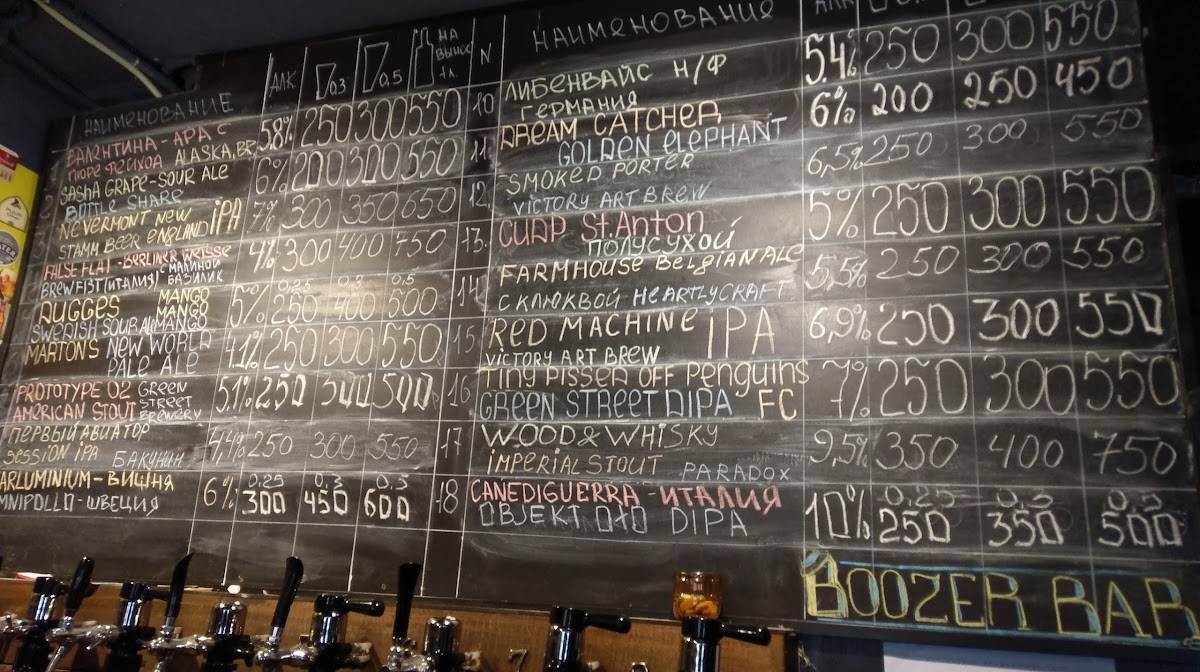 НАИМЕНОВАНИЕ АЛК 0.3 0.5 НА ВЫНОС 1л.
ВАЛЕНТИНА - APA С
ПЮРЕ ALASKA, BR 5.8% 250 300 550
SASHA GRAPE - SOUR ALE
BOTTLE SHARE 6% 200 300 550
NEVERMONT NEW
STAMM BEER ENGLAND IPA 7% 300 350 650
FALSE FLAT - BERLINER WEISSE
BREWFIST (ИТАЛИЯ) С МАЛИНОЙ БАЗИЛИК 4% 300 400 750
DUGGES MANGO MANGO
SWEDISH SOUR ALE MANGO 5% 0,25 250 0,3 400 0,5 500
MARTONS NEW WORLD
PALE ALE 4.1% 250 300 550
PROTOTYPE 02 GREEN
AMERICAN STOUT STREET BREWERY 5.1% 250 300 500
ПЕРВЫЙ АВИАТОР
SESSION IPA БАКУНИН 4,4% 250 300 550
ARLUMINIUM - ВИШНЯ
MNIPOLLO - ШВЕЦИЯ 6% 0.25 300 0.3 450 0.5 600
N НАИМЕНОВАНИЕ АЛК
10 ЛИБЕНВАЙС Н/Ф
ГЕРМАНИЯ 5.4% 250 300 550
11 DREAM CATCHER
GOLDEN ELEPHANT 6% 200 250 450
12 SMOKED PORTER
VICTORY ART BREW 6,5% 250 300 550
13. СИДР St. Anton
ПОЛУСУХОЙ 5% 250 300 550
14 FARMHOUSE BELGIAN ALE
С КЛЮКВОЙ HEARTLYCRAFT 5,5% 250 300 550
15 RED MACHINE IPA
VICTORY ART BREW 6,9% 250 300 550
16 TINY PISSED OFF PENGUINS
GREEN STREET DIPA FC 7% 7% 250 300 550
17 WOOD & WHISKY
IMPERIAL STOUT PARADOX 9,5% 350 400 750
18 CANEDIGUERRA - ИТАЛИЯ
OBJEKT 010 DIPA 10% 0,25 250 0,3 350 0,5 500
BOOZER BAR